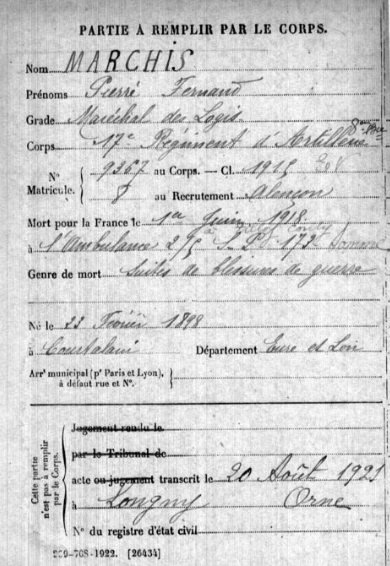 PARTIE À REMPLIR PAR LE CORPS.
Nom MARCHIS
Prénoms Pierre Fernand
Grade Maréchal des Logis
Corps 17e Régiment d'Artillerie
N° Matricule. 9367 au Corps. — Cl. 1915
8 au Recrutement Alençon
Mort pour la France le 1er Juin 1918
à l'Ambulance 2/5 S.P. 172 Somme
Genre de mort Suites de blessures de guerre
Né le 23 Février 1898
à Courtalain Département Eure et Loir
Arrt municipal (pr Paris et Lyon),
à défaut rue et N°.
Cette partie n'est pas à remplir par le Corps.
Jugement rendu le
par le Tribunal de
acte ou jugement transcrit le 20 Août 1921
à Longny Orne
N° du registre d'état civil
-708-1922. [26434]